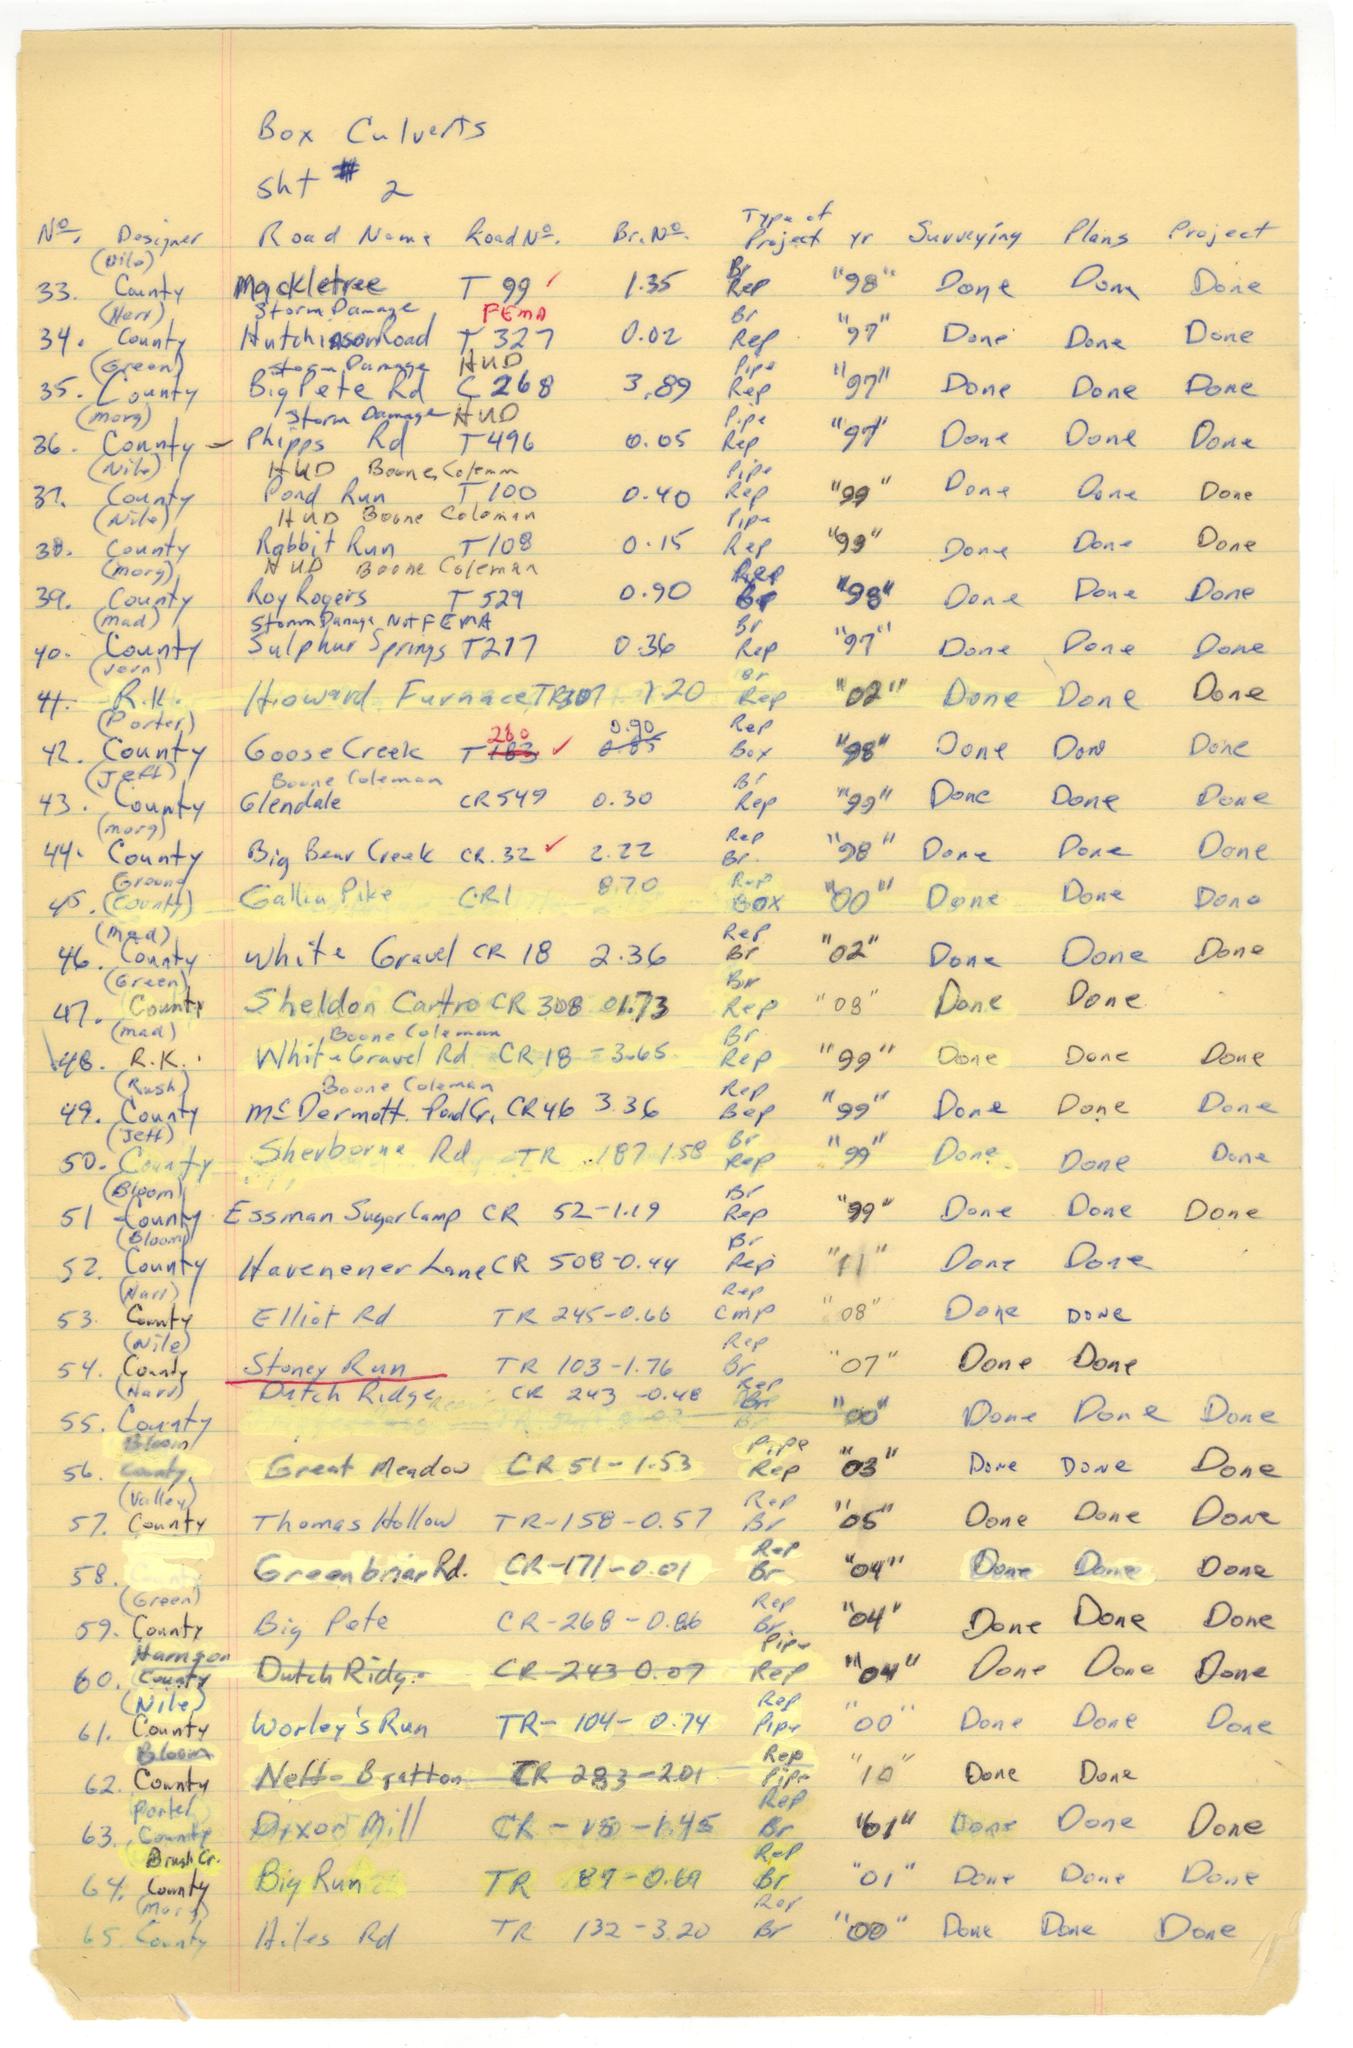 Box Culverts
Sht # 2
No. Designer Road Name Road No. Br. No. Type of Project yr Surveying Plans Project
(Nile) Br
33. County Mackletree T 99 ✓ 1.35 Rep "98" Done Done Done
(Harr) Storm Damage FEMA Br
34. County Hutchinson Road T 327 0.02 Rep "97" Done Done Done
(Green) Storm Damage HUD Pipe
35. County Big Pete Rd C 268 3.89 Rep "97" Done Done Done
(Morg) Storm Damage HUD Pipe
36. County - Phipps Rd T 496 0.05 Rep "97" Done Done Done
(Nile) HUD Boone Colemn Pipe
37. County Pond Run T 100 0.40 Rep "99" Done Done Done
(Nile) HUD Boone Coleman Pipe
38. County Rabbit Run T 108 0.15 Rep "99" Done Done Done
(morg) HUD Boone Coleman Rep
39. County Roy Rogers T 529 0.90 Br "98" Done Done Done
(mad) Storm Damage Not FEMA Br
40. County Sulphur Springs T 217 0.36 Rep "97" Done Done Done
(Vern) Br
41. R.K. Howard Furnace TR 207 1.20 Rep "02" Done Done Done
(Porter) 260 0.90 Rep
42. County Goose Creek T 183 ✓ 0.85 Box "98" Done Done Done
(Jeff) Boone Coleman Br
43. County Glendale CR 549 0.30 Rep "99" Done Done Done
(morg) Rep
44. County Big Bear Creek CR. 32 ✓ 2.22 Br. "98" Done Done Done
Ground 8.70 Rep
45. (County) Gallia Pike CR 1 Box "00" Done Done Done
(mad) Rep
46. County White Gravel CR 18 2.36 Br "02" Done Done Done
(Green) Br
47. County Sheldon Cartro CR 308 01.73 Rep "08" Done Done
(mad) Boone Coleman Br
48. R.K. White Gravel Rd CR 18 - 3.65 Rep "99" Done Done Done
(Rush) Boone Coleman Rep
49. County McDermott Pond Cr. CR 46 3.36 Rep "99" Done Done Done
(Jeff) Br
50. County Sherborne Rd TR 187 1.58 Rep "99" Done Done Done
(Bloom) Br
51 - County Essman Sugar Camp CR 52-1.19 Rep "99" Done Done Done
(Bloom) Br
52. County Havenener Lane CR 508-0.44 Rep "11" Done Done
(Harr) Rep
53. County Elliot Rd TR 245-0.66 Cmp "08" Done Done
(Nile) Rep
54. County Stoney Run TR 103-1.76 Br "07" Done Done
(Harr) Dutch Ridge CR 243 -0.48 Rep
55. County Br "00" Done Done Done
Bloom Pipe
56. County Great Meadow CR 51-1.53 Rep "03" Done Done Done
(Valley) Rep
57. County Thomas Hollow TR-158-0.57 Br "05" Done Done Done
Rep
58. County Greenbriar Rd. CR-171-0.01 Br "04" Done Done Done
(Green) Rep
59. County Big Pete CR-268-0.86 Br "04" Done Done Done
Harrison Pipe
60. County Dutch Ridge CR-243 0.07 Rep "04" Done Done Done
(Nile) Rep
61. County Worley's Run TR-104-0.74 Pipe "00" Done Done Done
Bloom Rep
62. County Neff-Bratton CR 283-2.01 Pipe "10" Done Done
Porter Rep
63. County Dixon Mill CR-15-1.45 Br "01" Done Done Done
Brush Cr. Rep
64. County Big Run TR 87-0.69 Br "01" Done Done Done
(Morg) Rep
65. County Hiles Rd TR 132-3.20 Br "00" Done Done Done